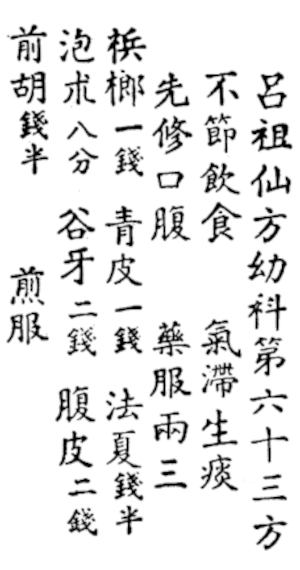 呂祖仙方幼科第六十三方
不節飲食　氣滯生痰
先修口腹　藥服兩三
梹榔一錢　青皮一錢　法夏錢半
泡朮八分　谷牙二錢　腹皮二錢
前胡錢半　煎服